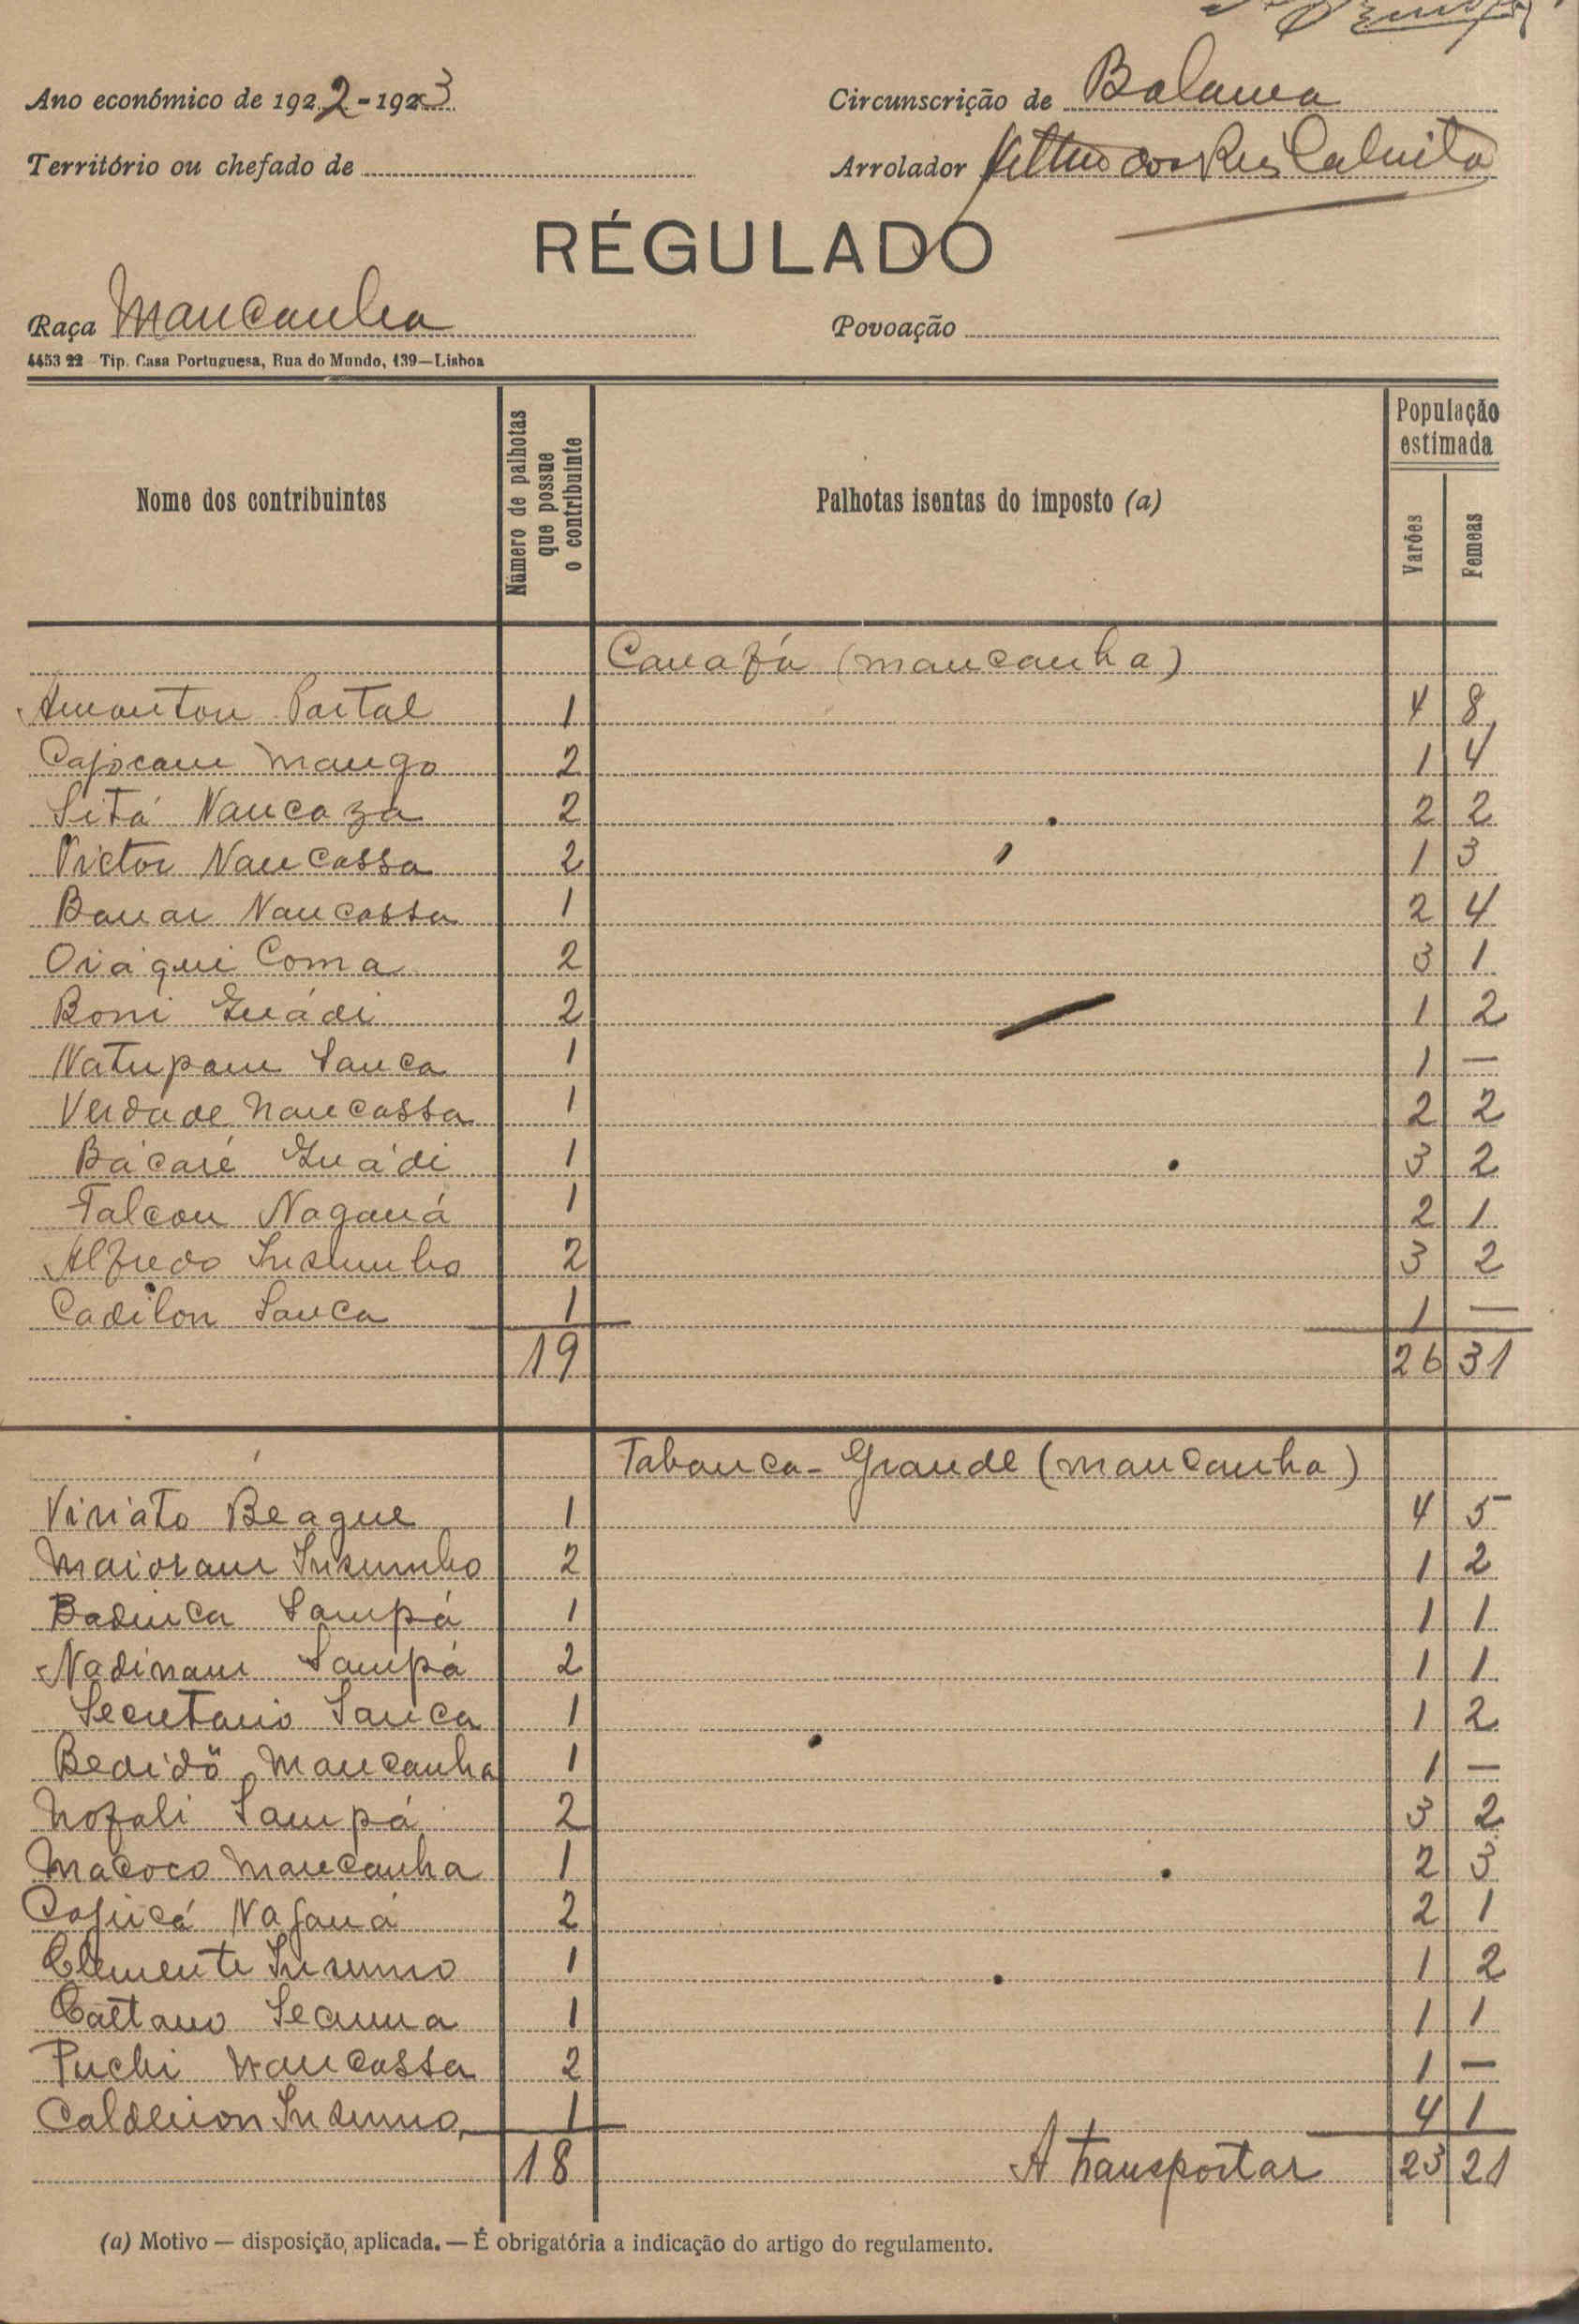 Ano económico de 1922-1923
Circunscrição de Bolama
Território ou chefado de
Arrolador
RÉGULADO
Raça Mancanha
Povoação
4453 22 Tip. Casa Portuguesa, Rua do Mundo, 139—Lisboa
Nome dos contribuintes
Número de palhotas que possue o contribuinte
Palhotas isentas do imposto (a)
População estimada
Varões
Femeas
Canafá (mancanha)
Amonton Portal 1 4 8
Cajocam Mango 2 1 4
Sitá Nancaza 2 2 2
Victor Nancassa 2 1 3
Banar Nancassa 1 2 4
Oiáqui Coma 2 3 1
Boni Guádi 2 1 2
Natupam Sanca 1 1 —
Verdade Nancassa 1 2 2
Bácaré Guádi 1 3 2
Falcon Naganá 1 2 1
Alfredo Insumbo 2 3 2
Cadilon Sanca 1 1 —
19 26 31
Tabanca-Grande (mancanha)
Viriato Beague 1 4 5
Maioram Insumbo 2 1 2
Badinca Sampá 1 1 1
Nadinam Sampá 2 1 1
Secretario Sanca 1 1 2
Bedidö Mancanha 1 1 —
Nofali Sampá 2 3 2
Macoco Mancanha 1 2 3
Cajucá Naganá 2 2 1
Clemente Insumo 1 1 2
Caetano 1 1 1
Puchi Nancassa 2 1 —
Caldeiron Insumo 1 4 1
18 A transportar 23 21
(a) Motivo — disposição, aplicada. — É obrigatória a indicação do artigo do regulamento.